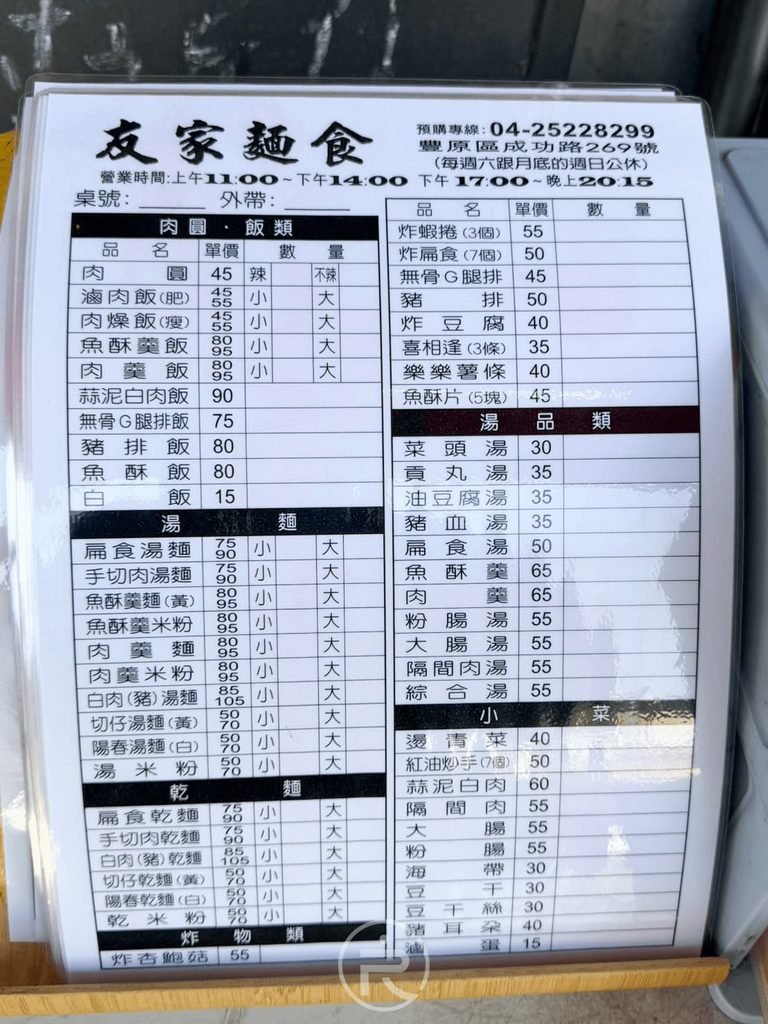 友家麵食
預購專線:04-25228299
豐原區成功路269號
(每週六跟月底的週日公休)
營業時間:上午11:00~下午14:00 下午17:00~晚上20:15
桌號: 外帶:
肉圓・飯類
品名 單價 數量
肉圓 45 辣 不辣
滷肉飯(肥) 45 55 小 大
肉燥飯(瘦) 45 55 小 大
魚酥羹飯 80 95 小 大
肉羹飯 80 95 小 大
蒜泥白肉飯 90
無骨G腿排飯 75
豬排飯 80
魚酥飯 80
白飯 15
湯麵
扁食湯麵 75 90 小 大
手切肉湯麵 75 90 小 大
魚酥羹麵(黃) 80 95 小 大
魚酥羹米粉 80 95 小 大
肉羹麵 80 95 小 大
肉羹米粉 80 95 小 大
白肉(豬)湯麵 85 105 小 大
切仔湯麵(黃) 50 70 小 大
陽春湯麵(白) 50 70 小 大
湯米粉 50 70 小 大
乾麵
扁食乾麵 75 90 小 大
手切肉乾麵 75 90 小 大
白肉(豬)乾麵 85 105 小 大
切仔乾麵(黃) 50 70 小 大
陽春乾麵(白) 50 70 小 大
乾米粉 50 70 小 大
炸物類
炸杏鮑菇 55
品名 單價 數量
炸蝦捲(3個) 55
炸扁食(7個) 50
無骨G腿排 45
豬排 50
炸豆腐 40
喜相逢(3條) 35
樂樂薯條 40
魚酥片(5塊) 45
湯品類
菜頭湯 30
貢丸湯 35
油豆腐湯 35
豬血湯 35
扁食湯 50
魚酥羹 65
肉羹 65
粉腸湯 55
大腸湯 55
隔間肉湯 55
綜合湯 55
小菜
燙青菜 40
紅油炒手(7個) 50
蒜泥白肉 60
隔間肉 55
大腸 55
粉腸 55
海帶 30
豆干 30
豆干絲 30
豬耳朵 40
滷蛋 15